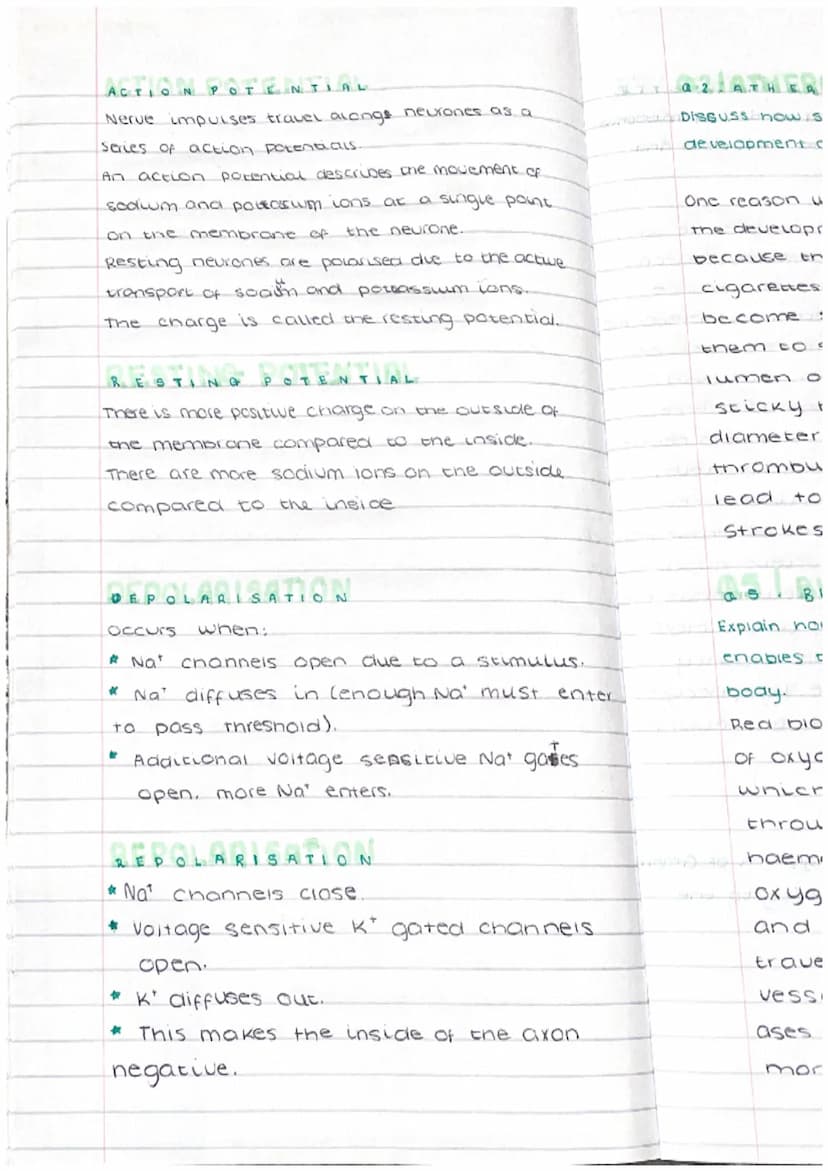 ACTION POTENTIAL
Nerve impulses travel alongs neurones as a
series of action potentials.
An action potential describes the movement of
sodium and potassium ions at a single point
on the membrane of the neurone.
Resting neurones are polarised due to the active
transport of sodium and potassium ions.
The charge is called the resting potential.
RESTING POTENTIAL
There is more positive charge on the outside of
the membrane compared to the inside.
There are more sodium ions on the outside
compared to the inside
DEPOLARISATION
occurs when:
* Na⁺ channels open due to a stimulus.
* Na⁺ diffuses in (enough Na⁺ must enter
to pass threshold).
* Additional voltage sensitive Na⁺ gates
open. more Na⁺ enters.
REPOLARISATION
* Na⁺ channels close.
* Voltage sensitive K⁺ gated channels
open.
* K⁺ diffuses out.
* This makes the inside of the axon
negative.
Q2: ATHER
Discuss how s
development
One reason
the developm
because th
cigarettes
become
them to
lumen o
sticky
diameter
thrombu
lead to
strokes
Q5. Bl
Explain ho
enables
body.
Red blo
of oxyg
which
throu
haem
oxyg
and
trave
vess
ases
mor